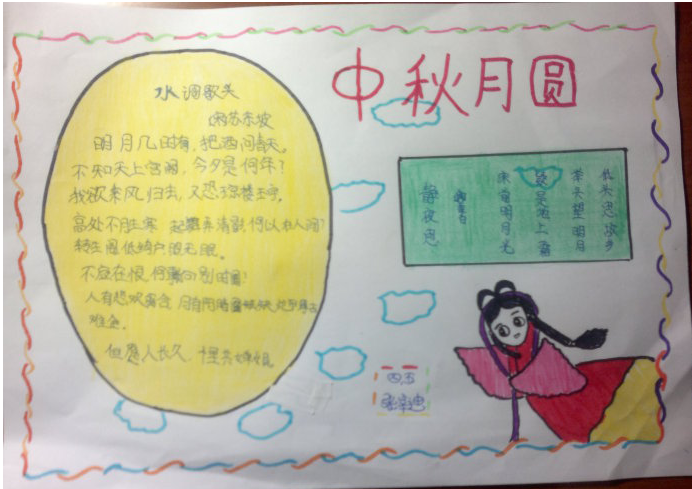 中秋月圆
水调歌头
苏东坡
明月几时有,把酒问青天。
不知天上宫阙,今夕是何年?
我欲乘风归去,又恐琼楼玉宇,
高处不胜寒 起舞弄清影,何似在人间?
转 低绮户照无眠。
不应有恨,何 别时圆?
人有悲欢离合,月有阴晴圆缺,此事古
难全。
但愿人长久,
静夜思
李白
床前明月光
疑是地上霜
举头望明月
低头思故乡
四.五